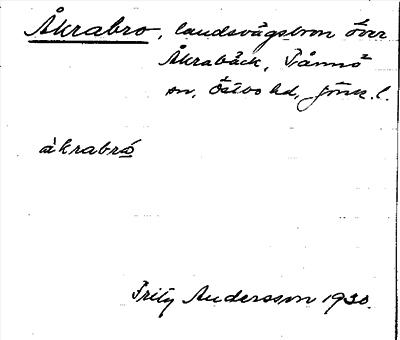 Åkrabro, landsvägsbron över
Åkrabäck, Tånnö
sn, Östbo hd, Jönk. l.
åkrabro
Fritz Andersson 1930.